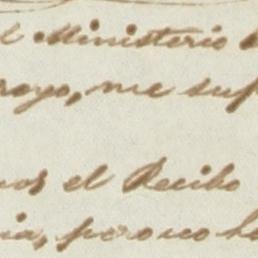 el Ministerio
royo, me sup
nos el Recibo
ia, pero no ha